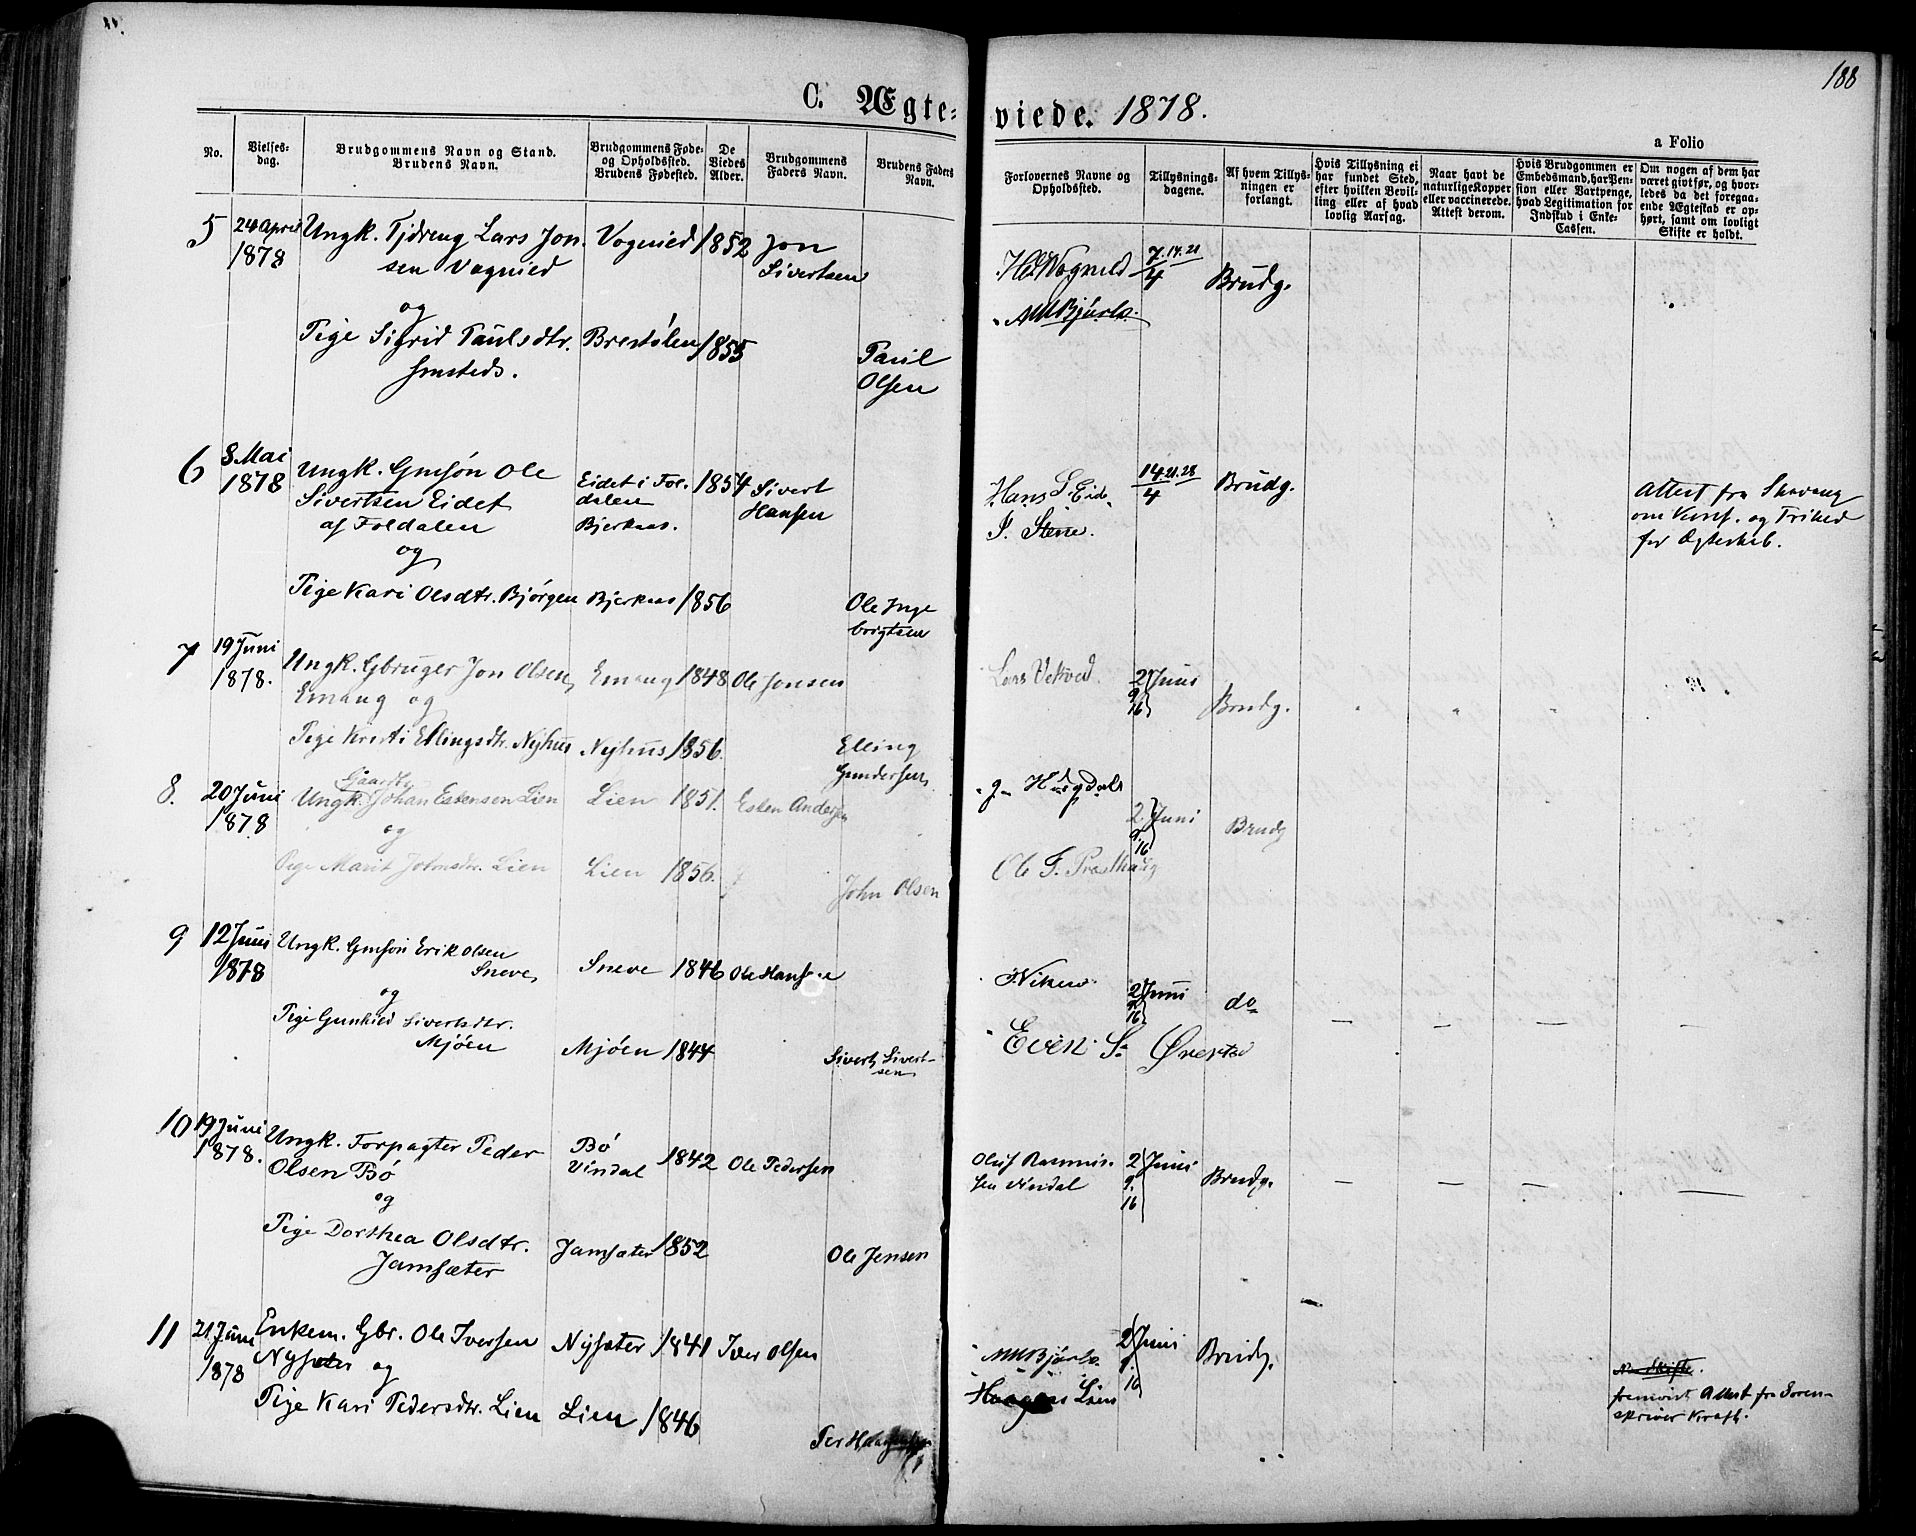 188
C. Ægte-
viede. 1878.
a Folio
No.
Vielses-
dag.
Brudgommens Navn og Stand.
Brudens Navn.
Brudgommens Føde-
og Opholdssted.
Brudens Fødested.
De
Viedes
Alder.
Brudgommens
Faders Navn.
Brudens Faders
Navn.
Forlovernes Navne og
Opholdssted.
Tillysnings-
dagene.
Af hvem Tillys-
ningen er
forlangt.
Hvis Tillysning ei
har fundet Sted,
efter hvilken Bevil-
ling eller af hvad
lovlig Aarsag.
Naar havt de
naturlige Kopper
eller vaccinerede.
Attest derom.
Hvis Brudgommen er
Embedsmand, har Pen-
sion eller Vartpenge,
hvad Legitimation for
Indskud i Enke-
Cassen.
Om nogen af dem har
været givt før, og hvor-
ledes da det foregaa-
ende Ægteskab er op-
hørt, samt om lovligt
Skifte er holdt.
5
24 April
1878
Ungk. Tjdreng Lars Jon-
sen Vognild
Vognild
1852
Jon
Sivertsen
og
Pige Sigrid Paulsdtr.
Smsteds.
Brestølen
1855
Paul
Olsen
Vognild
7. 14. 21
4
Brudg.
M Bjørlo.
6
8 Mai
1878
Ungk. Gmsøn Ole
Sivertsen Eidet
af Foldalen
og
Eidet i Fol-
dalen
Bjerkaas.
1854
Sivert
Hansen
Pige Kari Olsdtr. Bjørgen
Bjerkaas
1856
Ole Inge
brigtsen
Hans S. Eid.
S. Stene.
14. 21. 28
4
Brudg.
Attest fra Stavang
om Konf. og Frihed
for Ægteskab.
7
19 Juni
1878.
Ungk. Gbruger Jon Olsen
Emaug og
Emaug
1848
Ole Jonsen
Pige Kristi Ellingsdtr. Nyhus
Nyhus
1856.
Elling
Gundersen
Lars Vekved.
2 Juni
9
16
Brudg.
8.
20 Juni
1878
Gaardbr.
Ungk. Johan Estensen Lien
og
Lien
1851.
Esten Andersen
Pige Marit Johnsdtr. Lien
Lien
1856.
John Olsen
2 Juni
9
16
Brudg
Ole F. Præsthaug
9
12 Juni
1878
Ungk. Gmsøn Erik Olsen
Sneve
og
Sneve
1846
Ole Hansen
Pige Gunhild Sivertsdtr.
Mjøen
Mjøen
1844
Sivert Sivert-
sen
2 Juni
9
16
do
Even S. Ørestad
10
19 Juni
1878.
Ungk. Forpagter Peder
Olsen Bø
og
Bø
Vindal
1842
Ole Pedersen
Pige Dorthea Olsdtr.
Jamsæter
Jamsæter
1852
Ole Jensen
Oluf Rasmus-
sen Vindal
2 Juni
9.
16
Brudg.
11
21 Juni
1878
Enkem. Gbr. Ole Iversen
Nysæter og
Nysæter
1841
Iver Olsen
Pige Kari Pedersdtr. Lien
Lien
1846
M Bjørlo.
Lien
2 Juni
9.
16
Brudg.
fremvist Attest fra Soren-
skriver Kraft.